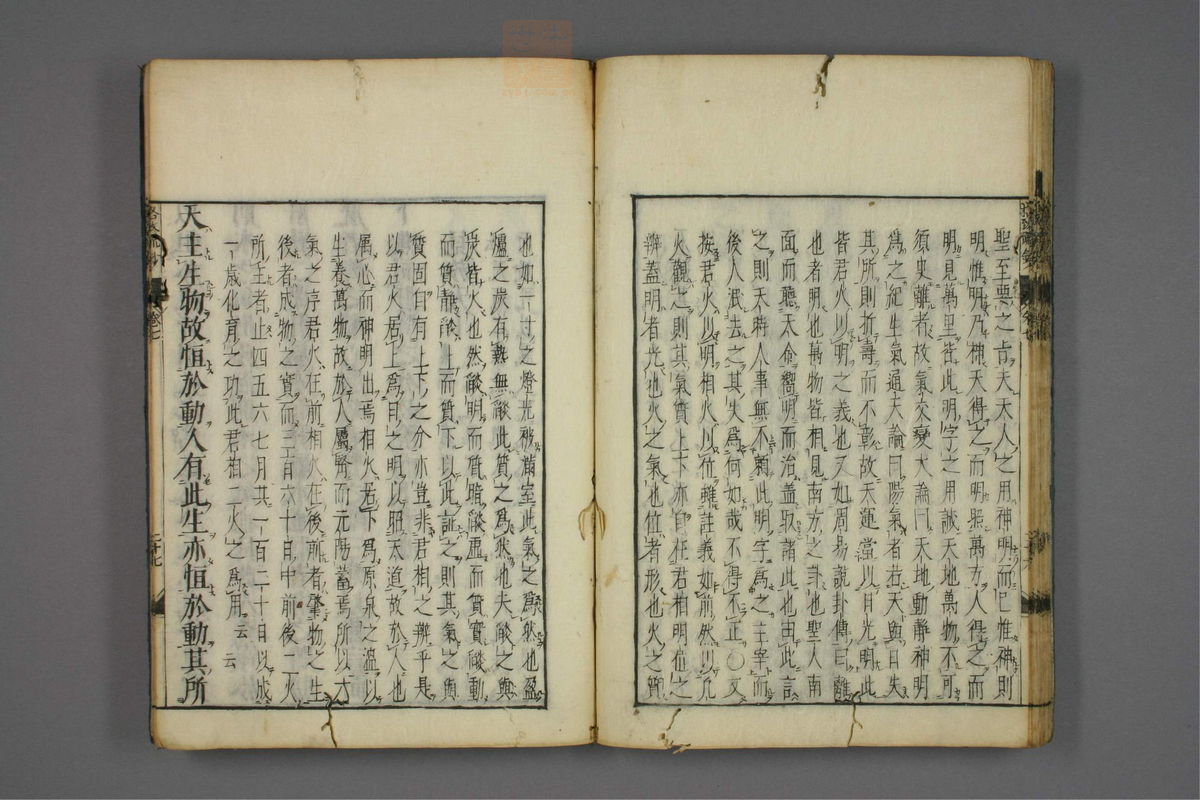 聖至要之旨夫天人之用神明而已惟神則
明惟明乃神天得之而明照萬方人得之而
明見萬里皆此明字之用誠天地萬物不可
須臾離者故氣交變大論曰天地動靜神明
爲之紀生氣通天論曰陽氣者若天與日失
其所則折壽而不彰故天運當以日光明此
皆君火以明之義也又如周易說卦傳曰離
也者明也萬物皆相見南方之卦也聖人南
面而聽天命嚮明而治蓋取諸此也由此言
之則天時人事無不賴此明字爲之主宰而
後人泯去之其失爲何如哉不得不正○又
按君火以明相火以位雖註義如前然以凡
火觀之則其氣質上下亦自在君相明位之
辨蓋明者光也火之氣也位者形也火之質
也如一寸之燈光被滿室此氣之爲然也盈
爐之炭有熱無燄此質之爲然也夫燄之與
炭皆火也然燄明而質暗燄虛而質實燄動
而質靜燄上而質下以此証之則其氣之與
質固自有上下之分亦豈非君相之辨乎是
以君火居上爲日之明以昭天道故於人也
屬心而神明出焉相火居下爲原泉之溫以
生養萬物故於人屬腎而元陽蓄焉所以六
氣之序君火在前相火在後前者肇物之生
後者成物之實而三百六十日中前後二火
所主者止四五六七月共一百二十日以成
一歲化育之功此君相二火之爲用云云
天主生物故恒於動人有此生亦恒於動其所